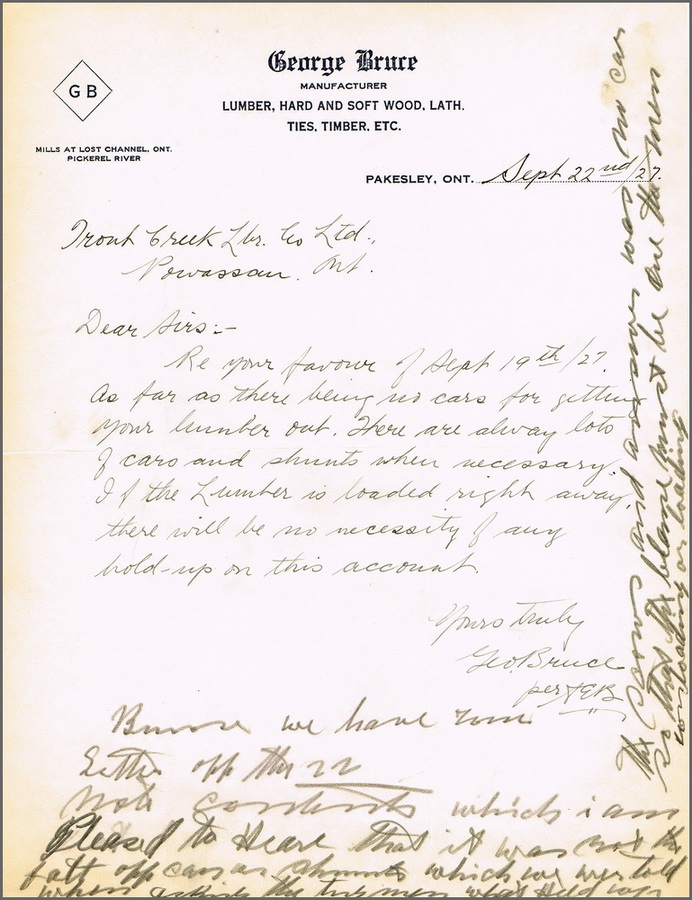 George Bruce
MANUFACTURER
LUMBER, HARD AND SOFT WOOD, LATH,
TIES, TIMBER, ETC.
G B
MILLS AT LOST CHANNEL, ONT.
PICKEREL RIVER
PAKESLEY, ONT. Sept 22nd/27.
Trout Creek Lbr. Co Ltd.,
Powassan. Ont.
Dear Sirs:-
Re your favour of Sept 19th/27.
As far as there being no cars for getting
your lumber out. There are alway lots
of cars and shunts when necessary.
If the Lumber is loaded right away,
there will be no necessity of any
hold-up on this account
Yours truly
Geo. Bruce
per
we have
Letter off the 22
Note contents which i am
Pleased to Heare that it was not the
falt off cars or shunts which we wer told
when the what held
the and answer was no car
so that the blame must be one the men
or loading